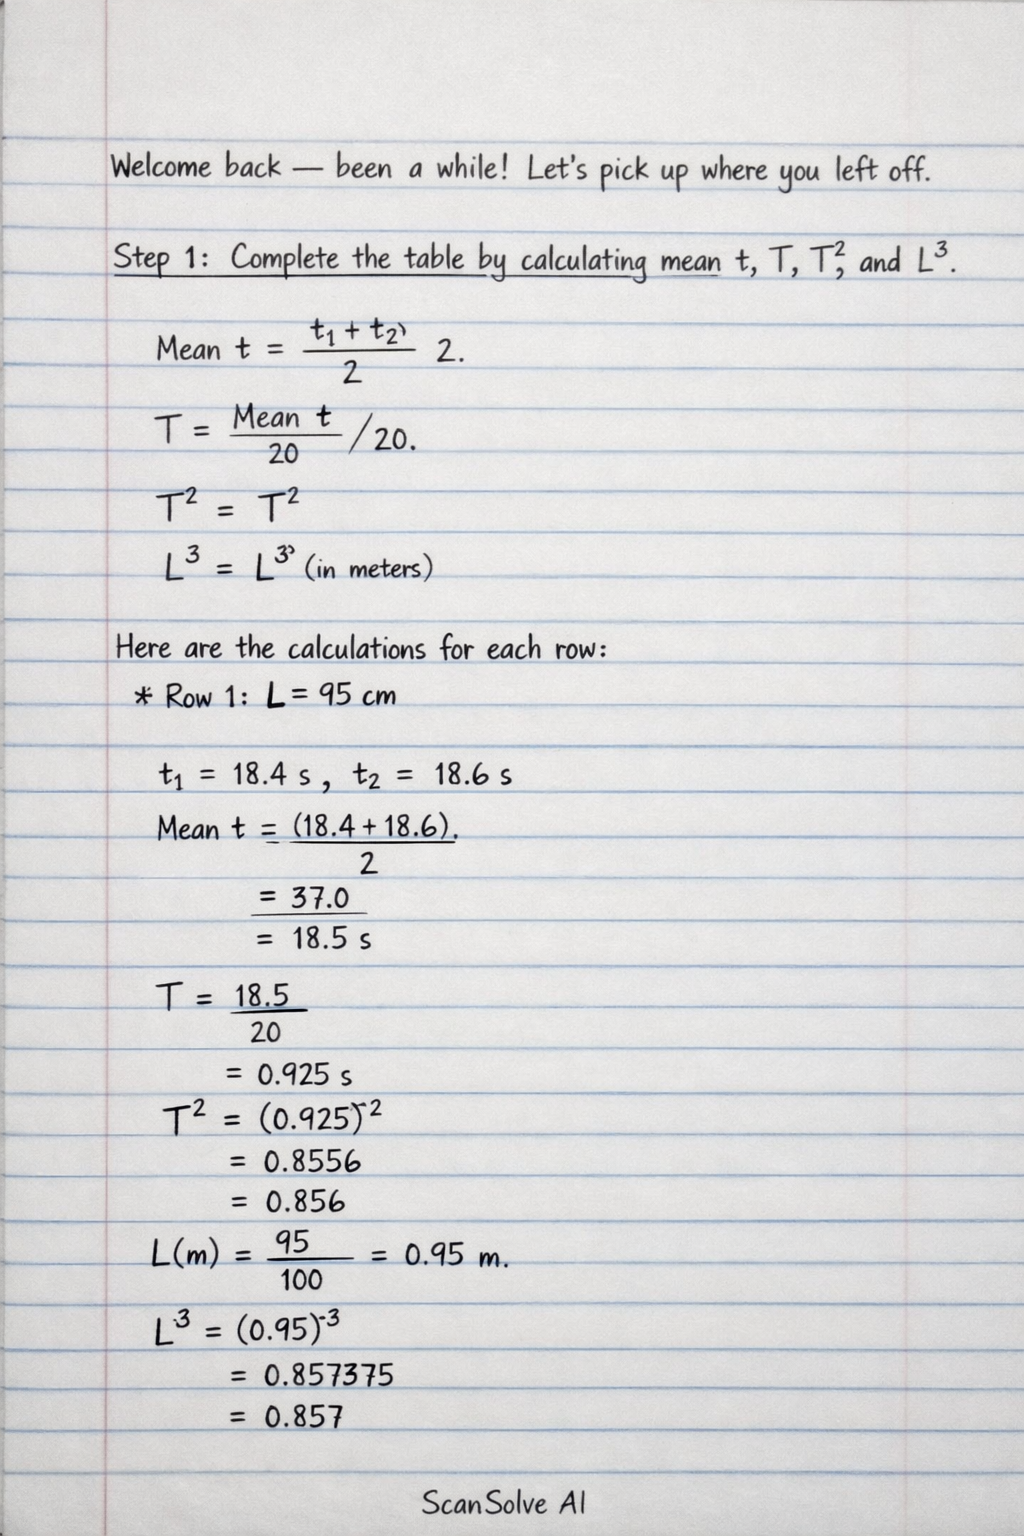 Welcome back — been a while! Let's pick up where you left off.
Step 1: Complete the table by calculating mean t, T, T², and L³.
Mean t = (t₁ + t₂)/2 2.
T = Mean t/20 /20.
T² = T²
L³ = L³ (in meters)
Here are the calculations for each row:
* Row 1: L = 95 cm
t₁ = 18.4 s, t₂ = 18.6 s
Mean t = (18.4 + 18.6).
2
= 37.0
= 18.5 s
T = 18.5
20
= 0.925 s
T² = (0.925)⁻²
= 0.8556
= 0.856
L(m) = 95/100 = 0.95 m.
L⁻³ = (0.95)⁻³
= 0.857375
= 0.857
ScanSolve AI